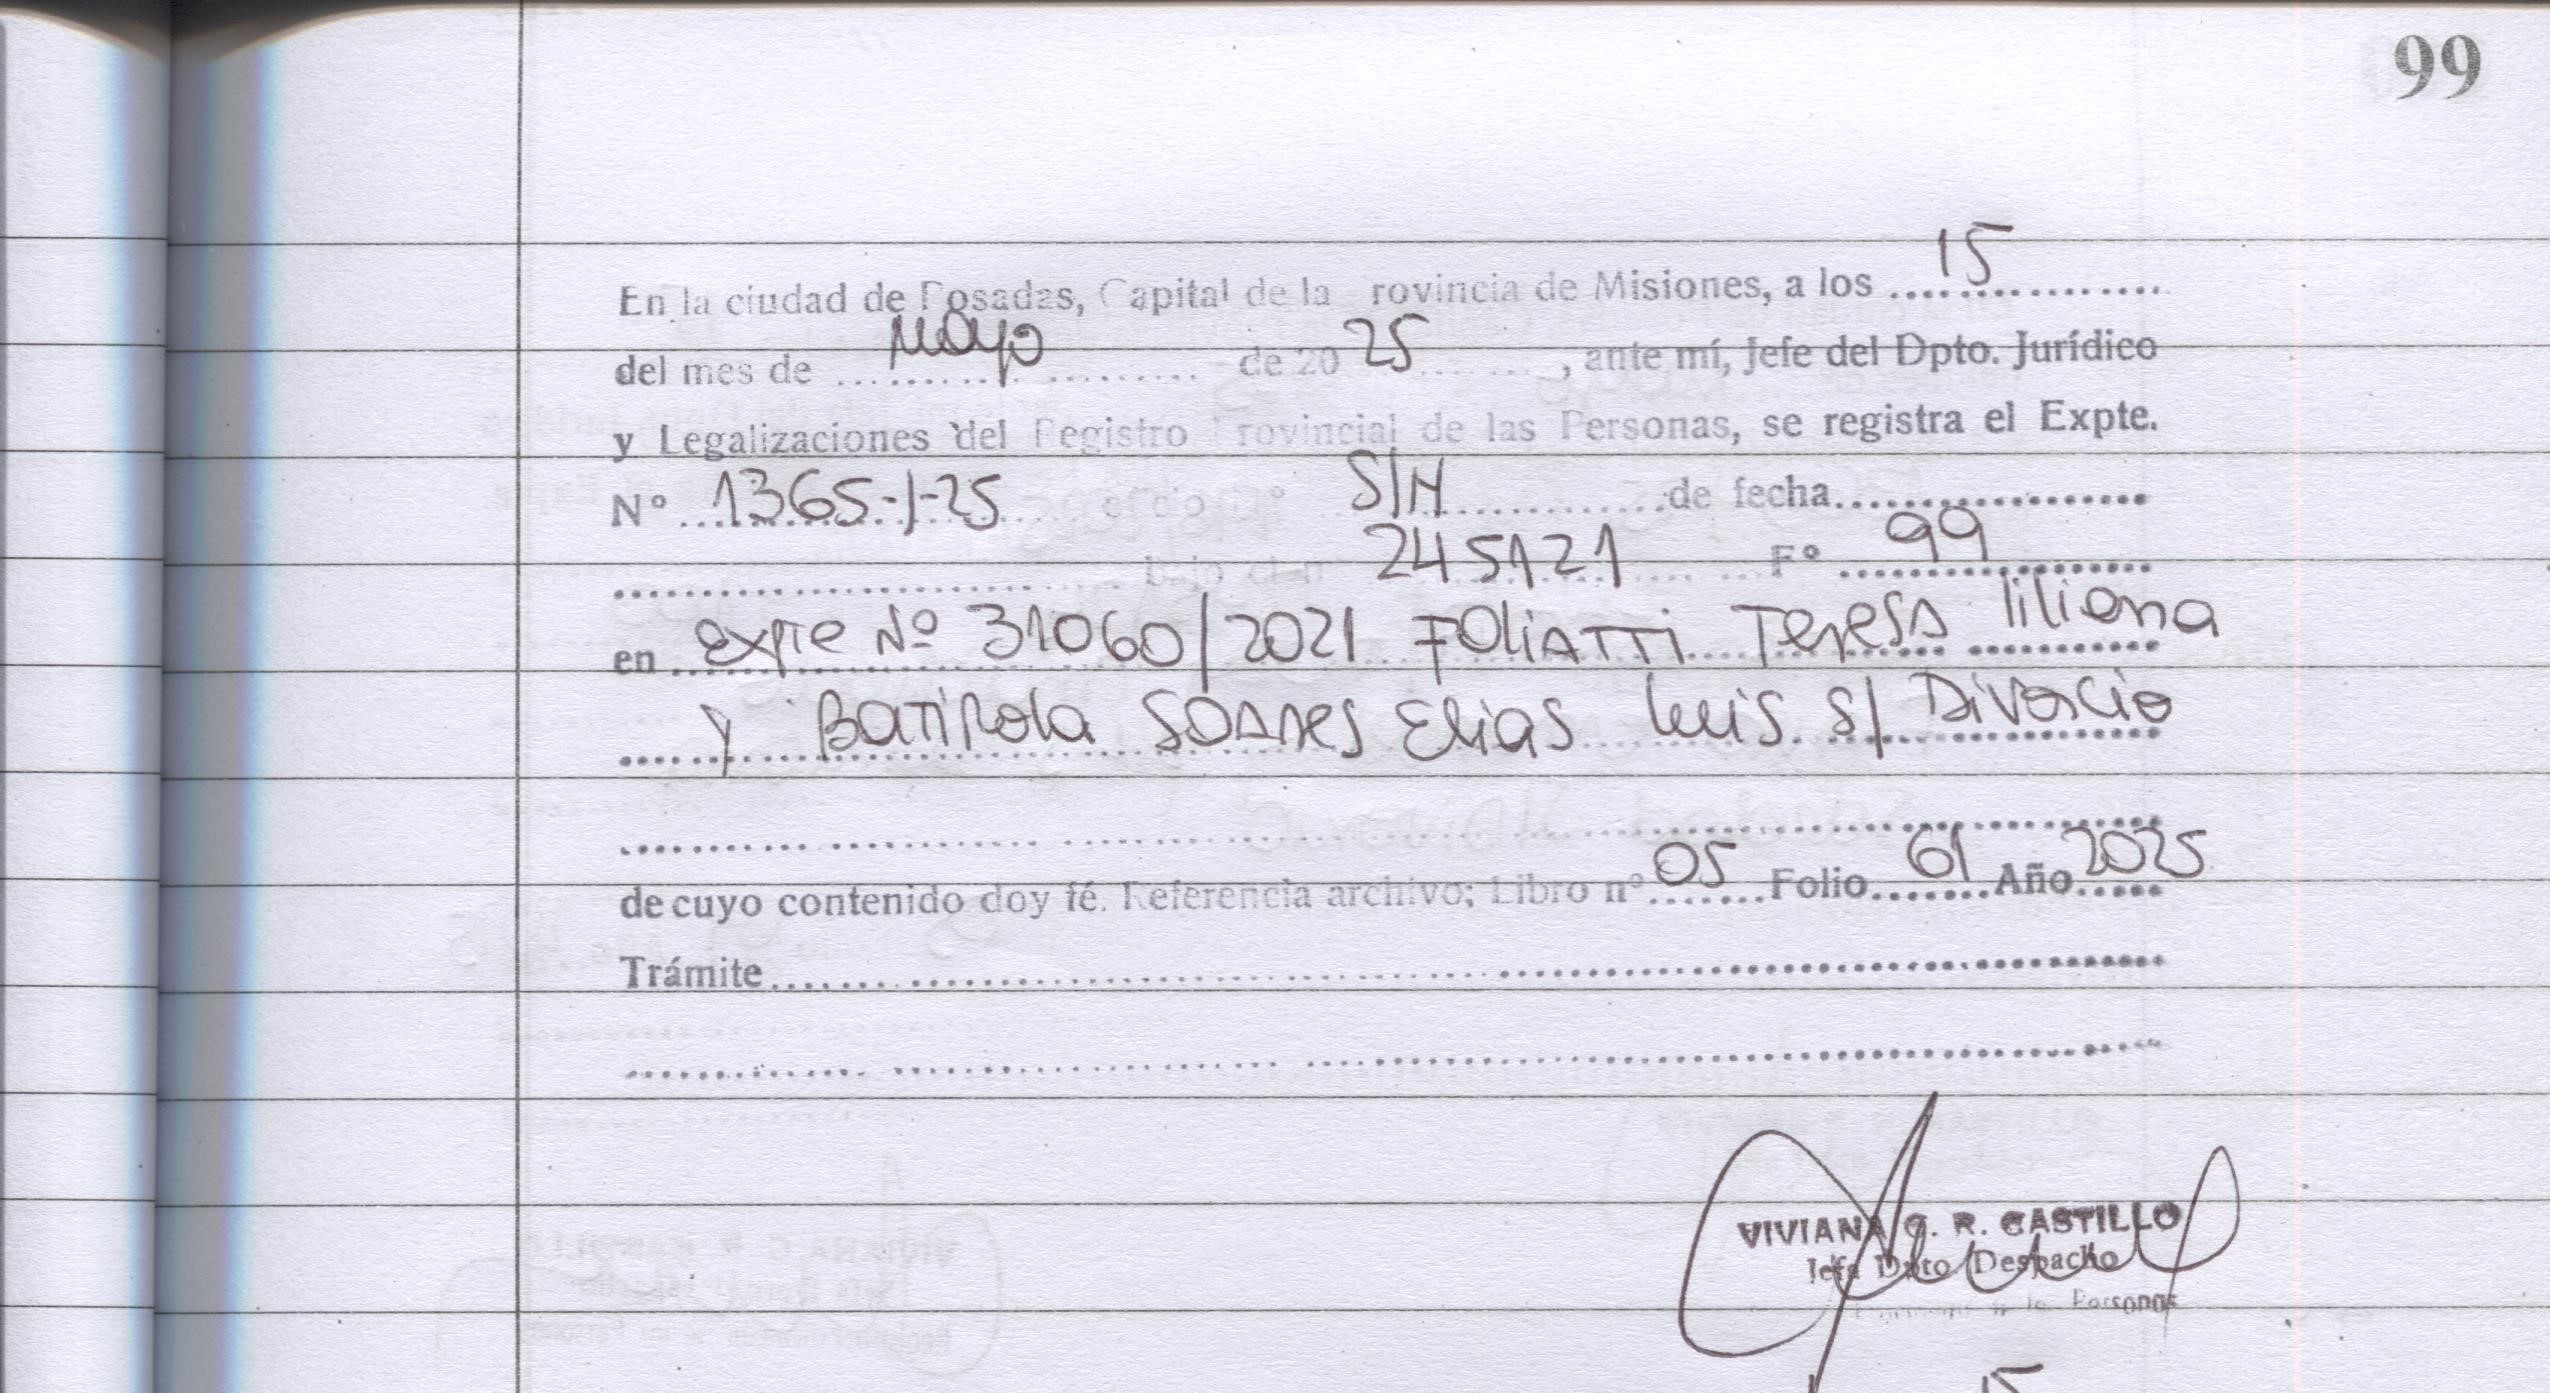 99
En la ciudad de Posadas, Capital de la rovincia de Misiones, a los 15
del mes de Mayo de 20 25, ante mí, Jefe del Dpto. Jurídico
y Legalizaciones del Registro Provincial de las Personas, se registra el Expte.
Nº 1365-J-25 oficio Nº S/N de fecha
bajo el nº 245121 Fº 99
en expte Nº 31060/2021 FOLiATTi Teresa liliana
y BaTiRola Soares Elias luis s/ Divorcio
de cuyo contenido doy fé. Referencia archivo; Libro nº 05 Folio 61 Año 2025
Trámite
VIVIANA G. R. CASTILLO
Jefa Dpto. Despacho
de las Personas
15